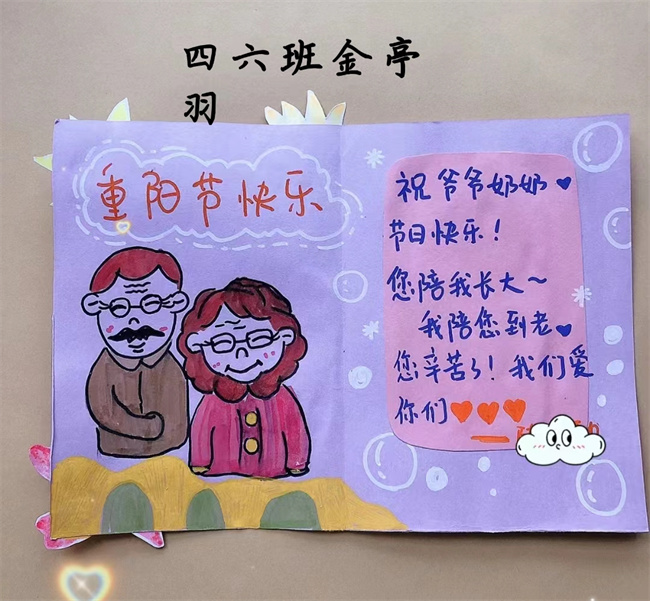 四六班金亭
羽
重阳节快乐
祝爷爷奶奶♥
节日快乐！
您陪我长大~
我陪您到老♥
您辛苦了！我们爱
你们♥♥♥